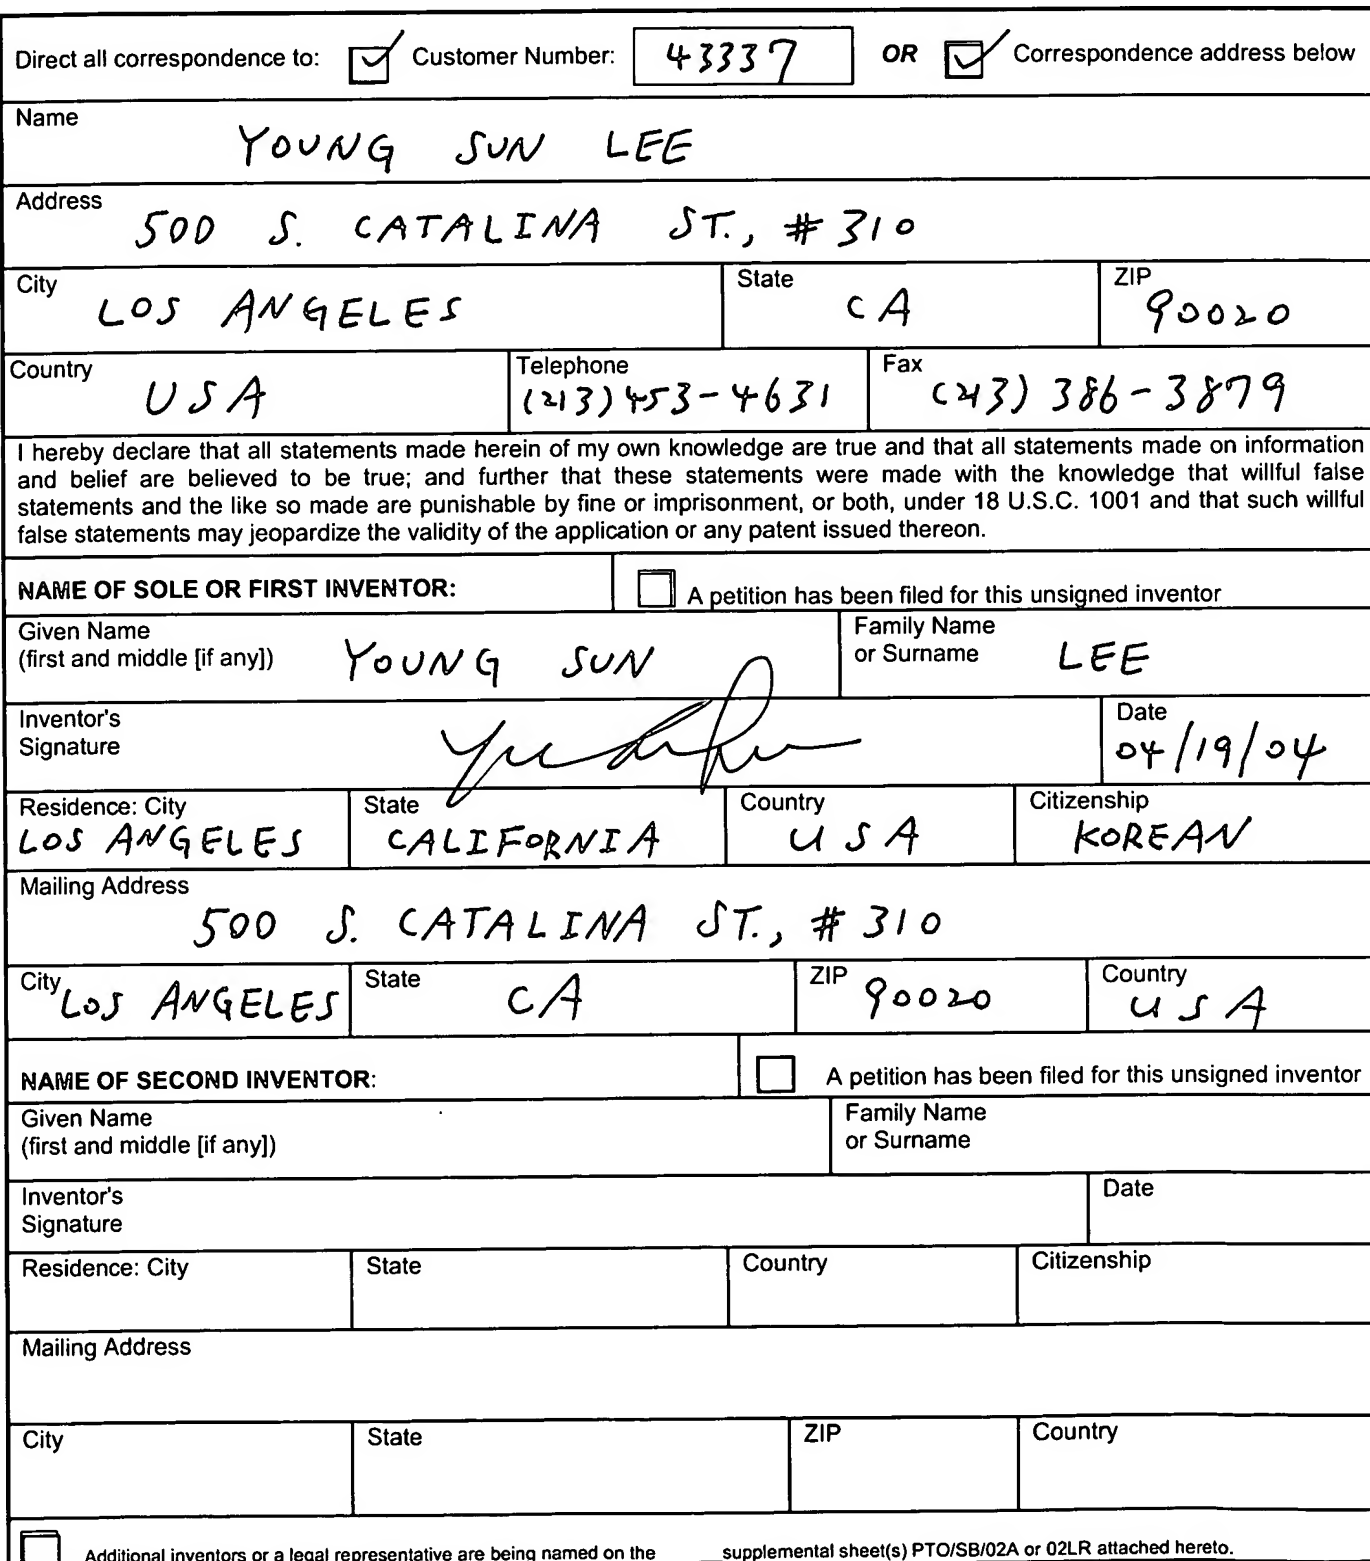 Direct all correspondence to: Customer Number: 43337 OR Correspondence address below
Name
YOUNG SUN LEE
Address
500 S. CATALINA ST., #310
City State ZIP
LOS ANGELES CA 90020
Country Telephone Fax
USA (213)453-4631 (213) 386-3879
I hereby declare that all statements made herein of my own knowledge are true and that all statements made on information
and belief are believed to be true; and further that these statements were made with the knowledge that willful false
statements and the like so made are punishable by fine or imprisonment, or both, under 18 U.S.C. 1001 and that such willful
false statements may jeopardize the validity of the application or any patent issued thereon.
NAME OF SOLE OR FIRST INVENTOR: A petition has been filed for this unsigned inventor
Given Name Family Name
(first and middle [if any]) YOUNG SUN or Surname LEE
Inventor's Date
Signature 04/19/04
Residence: City State Country Citizenship
LOS ANGELES CALIFORNIA USA KOREAN
Mailing Address
500 S. CATALINA ST., #310
City State ZIP Country
LOS ANGELES CA 90020 USA
NAME OF SECOND INVENTOR: A petition has been filed for this unsigned inventor
Given Name Family Name
(first and middle [if any]) or Surname
Inventor's Date
Signature
Residence: City State Country Citizenship
Mailing Address
City State ZIP Country
Additional inventors or a legal representative are being named on the supplemental sheet(s) PTO/SB/02A or 02LR attached hereto.